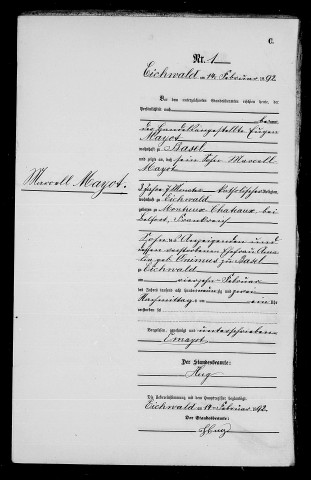 C.
Nr. 1
Eichwald am 14. Februar 1892
Vor dem unterzeichneten Standesbeamten erschien heute, der
Persönlichkeit nach
bekannt
der Handelsangestellte Eugen
Mayot
wohnhaft in Basel
und zeigte an, daß sein Sohn Marcell
Mayot
Marcell Mayot.
3 Jahre 7 Monate katholischer Religion
wohnhaft in Eichwald
geboren zu Montreux Chateau bei
Belfort, Frankreich
Sohn des Anzeigenden und
dessen verstorbenen Ehefrau
geb. zu Basel
zu Eichwald
am vierzehn Februar
des Jahres tausend acht hundert neunzig und zwei
Nachmittags um ein Uhr
verstorben sei
Vorgelesen, genehmigt und unterschrieben
E Mayot
Der Standesbeamte:
Hug
Die Uebereinstimmung mit dem Hauptregister beglaubigt
Eichwald am 14. Februar 1892.
Der Standesbeamte:
Hug